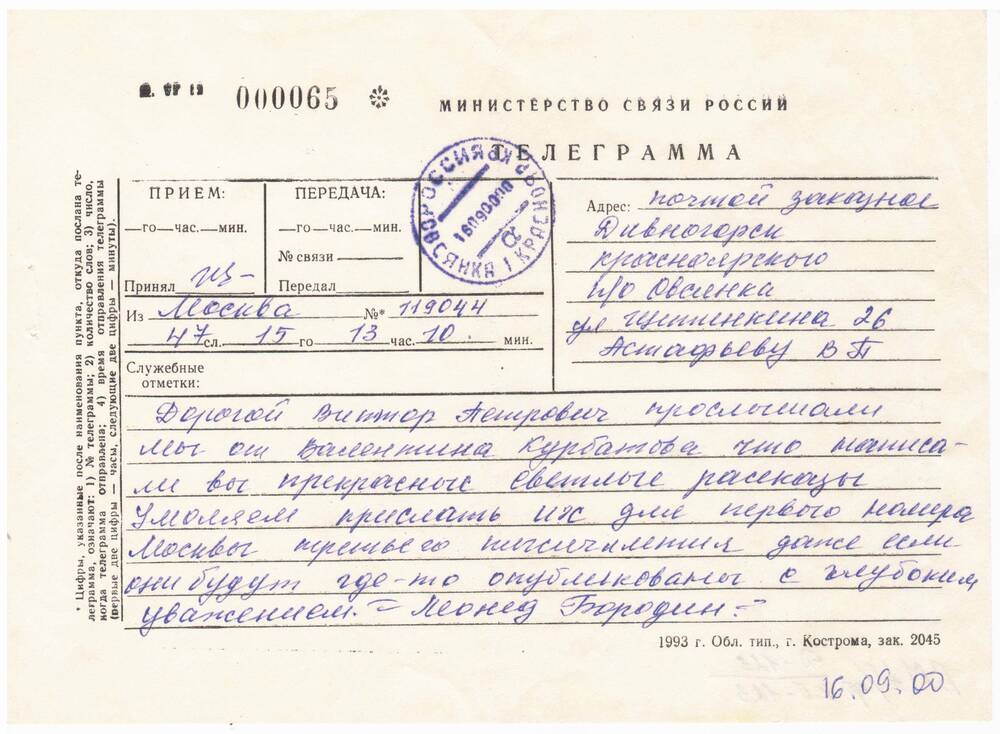 000065 *
МИНИСТЕРСТВО СВЯЗИ РОССИИ
ТЕЛЕГРАММА
ПРИЕМ:
—го—час.—мин.
Принял
ПЕРЕДАЧА:
—го—час.—мин.
№ связи
Передал
РОССИЯ
ОВСЯНКА 1 КРАСНОЯРСК
Адрес: почтой заказное
Дивногорск
красноярского
п/о Овсянка
ул Щетинкина 26
Астафьеву В П
Из Москва №* 119044
47 сл. 15 го 13 час. 10. мин.
Служебные
отметки:
Дорогой Виктор Петрович прослышали
мы от Валентина Курбатова что написа-
ли вы прекрасные светлые рассказы
Умоляем прислать их для первого номера
Москвы третьего тысячелетия даже если
они будут где-то опубликованы с глубоким
уважением = Леонид Бородин =
1993 г. Обл. тип., г. Кострома, зак. 2045
16.09.00
* Цифры, указанные после наименования пункта, откуда послана те-
леграмма, означают: 1) № телеграммы; 2) количество слов; 3) число,
когда телеграмма отправлена; 4) время отправления телеграммы
(первые две цифры — часы, следующие две цифры — минуты).